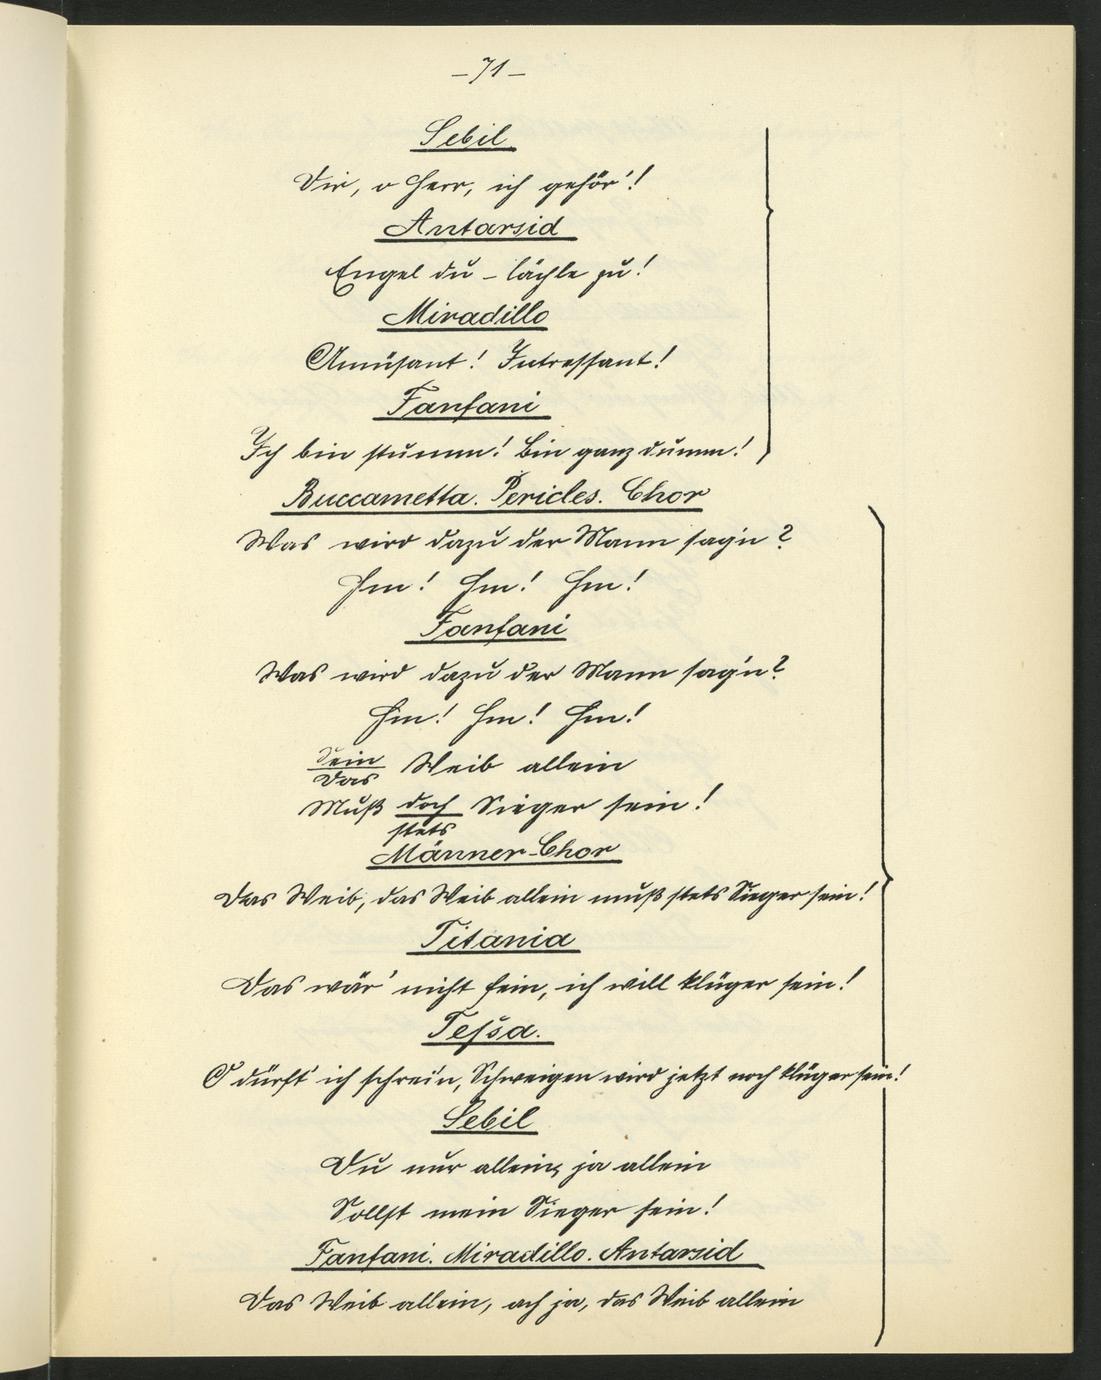 – 71 –
Sebil
Dir, o Herr, ich gehör'!
Antarsid
Engel du – lächle zu!
Miradillo
Amüsant! Intressant!
Fanfani
Ich bin stumm! Bin ganz dumm!
Buccametta. Pericles. Chor
Was wird dazu der Mann sag'n?
Hm! Hm! Hm!
Fanfani
Was wird dazu der Mann sag'n?
Hm! Hm! Hm!
Sein
Das Weib allein
Muß doch Sieger sein!
stets
Männer-Chor
Das Weib, das Weib allein muß stets Sieger sein!
Titania
Das wär' nicht fein, ich will klüger sein!
Tessa.
O dürft' ich schrei'n, Schweigen wird jetzt noch klüger sein!
Sebil
Du nur allein, ja allein
Sollst mein Sieger sein!
Fanfani. Miradillo. Antarsid
Das Weib allein, ach ja, das Weib allein